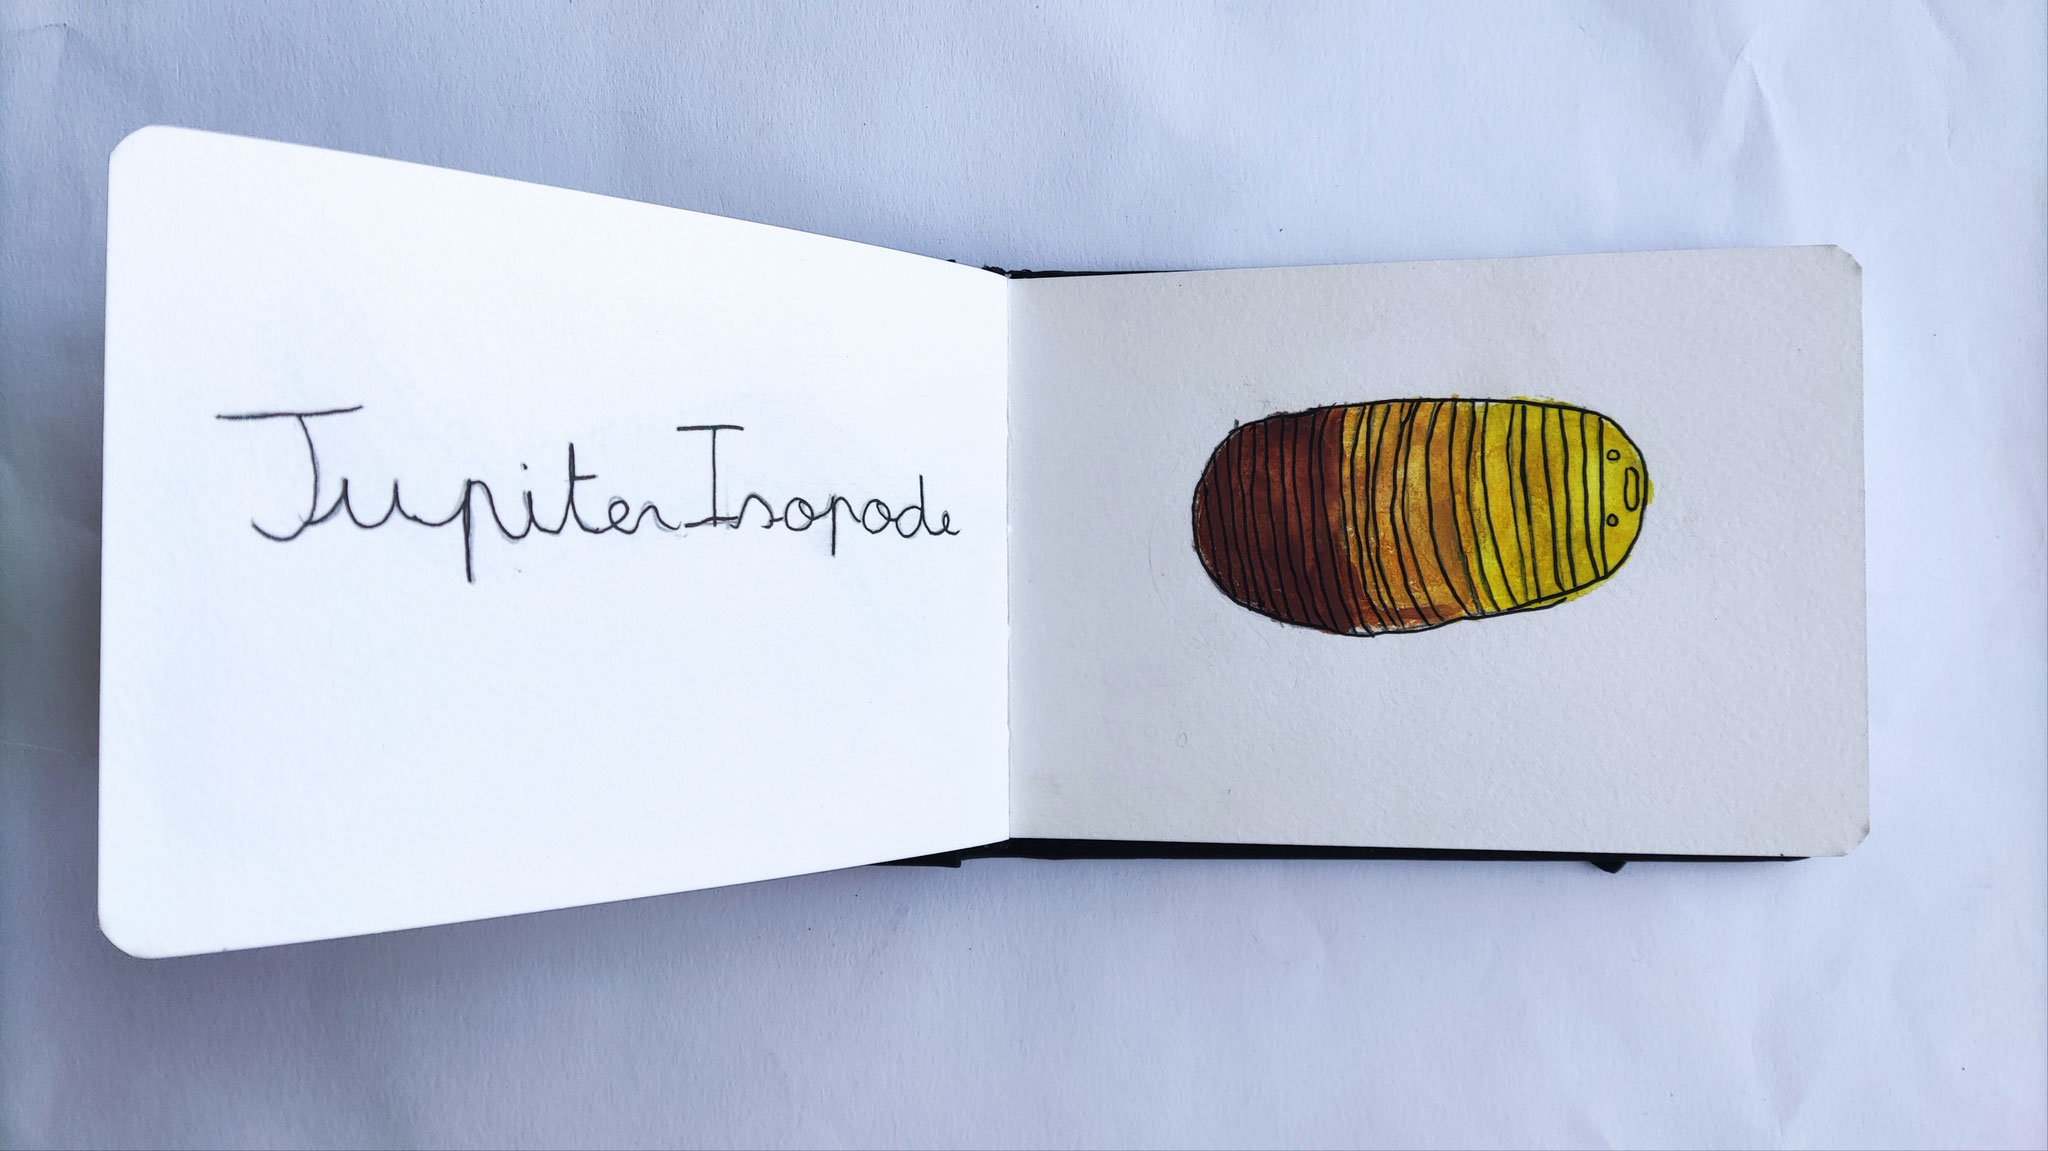 Jupiter Isopode